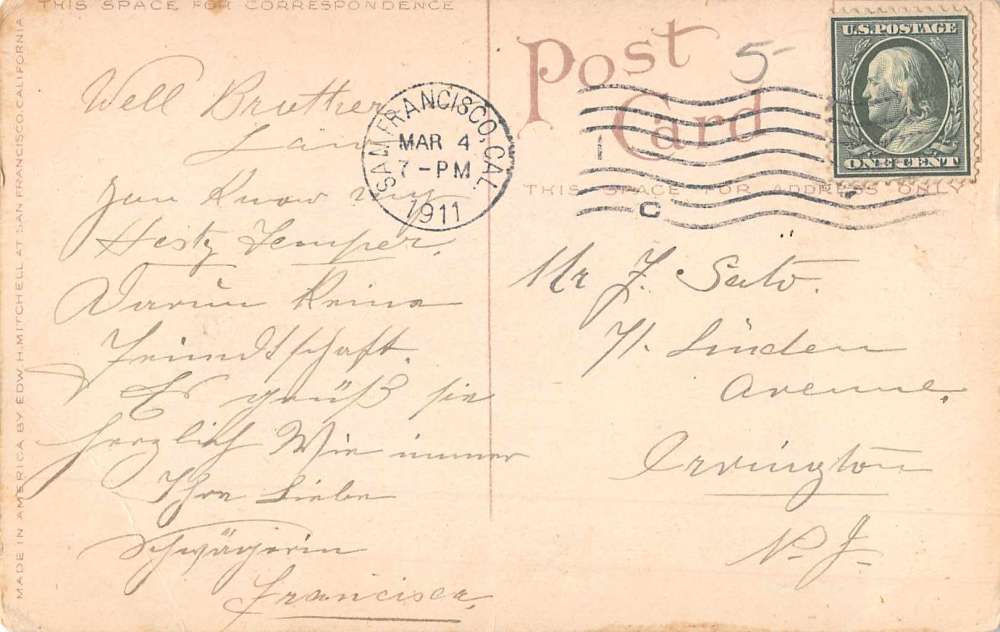 THIS SPACE FOR CORRESPONDENCE
Post
Card
THIS SPACE FOR ADDRESS ONLY
MADE IN AMERICA BY EDW. H. MITCHELL AT SAN FRANCISCO, CALIFORNIA
U.S. POSTAGE
ONE CENT
SAN FRANCISCO, CAL.
MAR 4
7-PM
1911
C
5-
Well Brother
Law
You Know my
Hesty Temper.
Darum Keine
Feindtschaft.
Es grüß sie
herzlich Wie immer
Ihre Liebe
Schwägerin
Francisca.
Mr J.
71. Linden
Avenue.
Irvington
N. J.